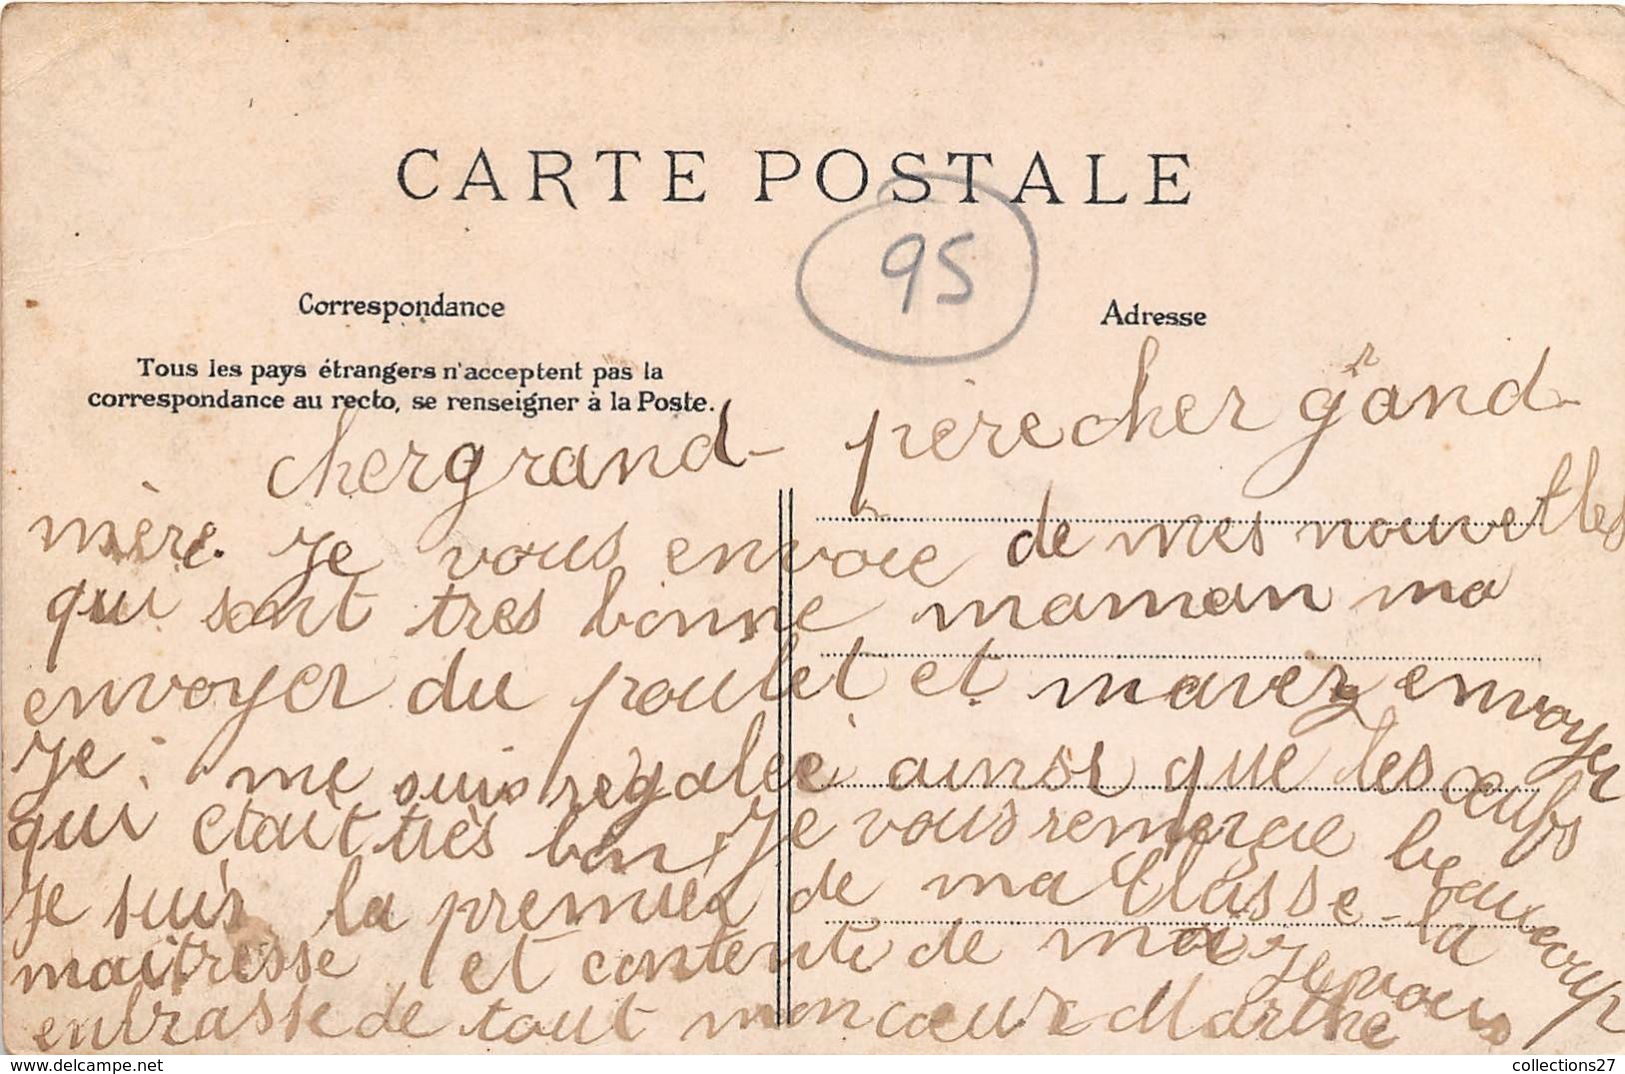 CARTE POSTALE
95
Correspondance
Adresse
Tous les pays étrangers n'acceptent pas la
correspondance au recto, se renseigner à la Poste.
cher grand- père cher grand-
mère. Je vous envoie de mes nouvelles
qui sont tres bonne maman ma
envoyer du poulet et mavez envoyer
Je me suis régalée ainsi que les œufs
qui etait très bon Je vous remercie beaucoup
Je suis la premier de ma Classe - la
maitresse et contente de moi Je vous
enbrasse de tout mon cœur Marthe
collections27